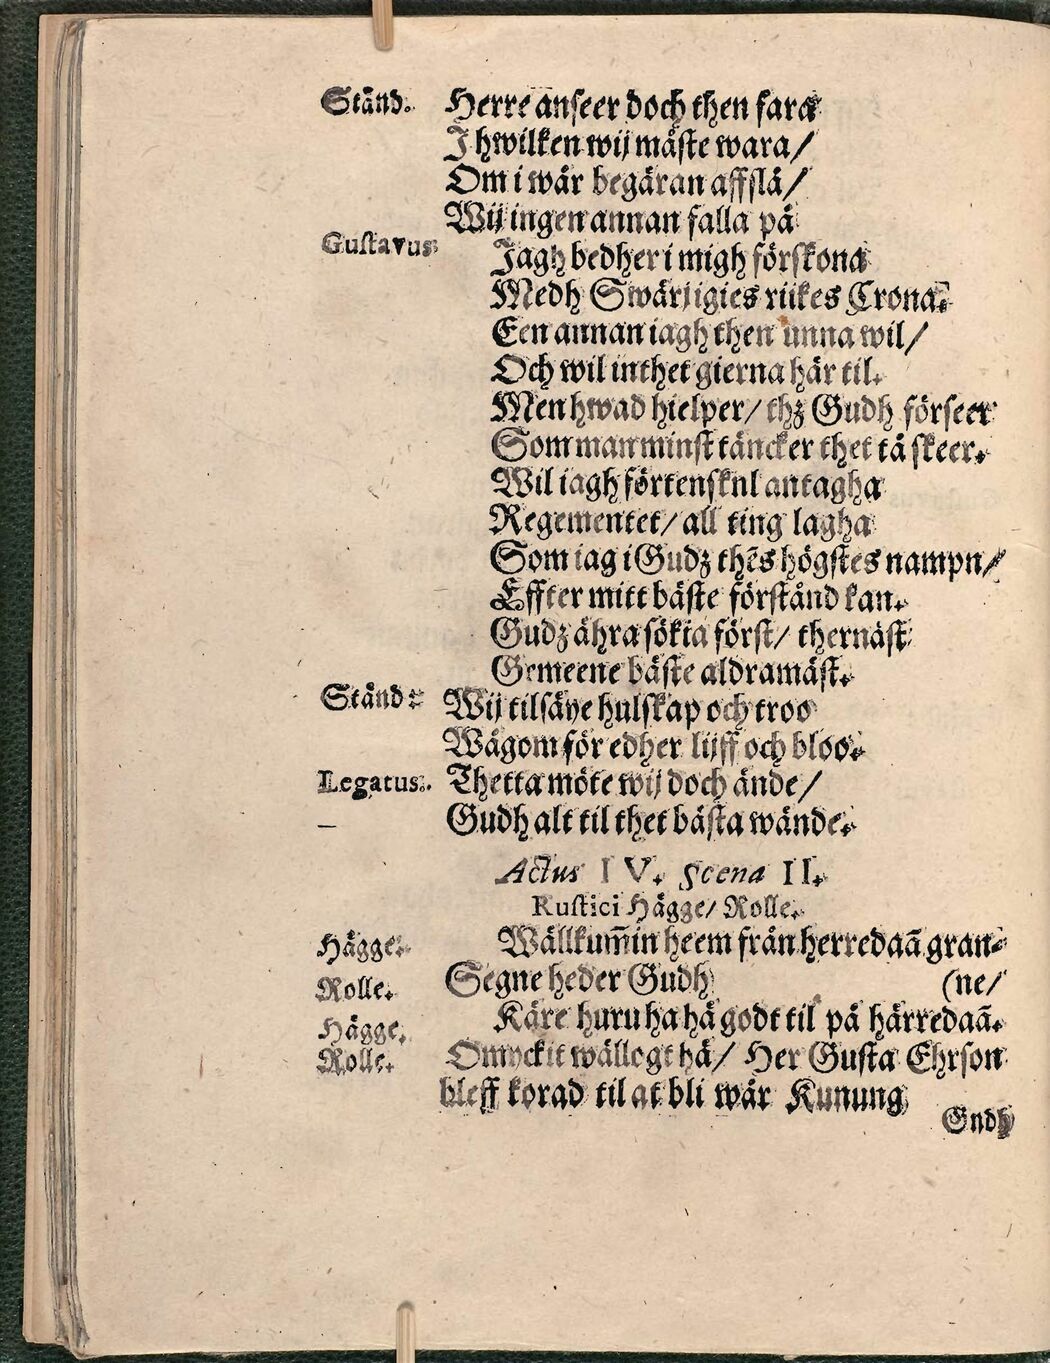 Ständ. Herre anseer doch then fara
I hwilken wij måste wara/
Om i wår begäran affslå/
Wij ingen annan falla på
Gustavus: Jagh bedher i migh förskona
Medh Swärjigies rijkes Crona.
Een annan iagh then unna wil/
Och wil inthet gierna här til.
Men hwad hielper/ thz Gudh förseer
Som man minst täncker thet tå skeer.
Wil iagh förtenskul antagha
Regementet/ all ting lagha
Som iag i Gudz thes högstes nampn/
Effter mitt bäste förstånd kan.
Gudz ähra sökia först/ thernäst
Gemeene bäste aldramäst.
Ständ: Wij tilsäye hulskap och troo
Wågom för edher lijff och bloo.
Legatus. Thetta möte wij doch ände/
Gudh alt til thet bästa wände.
Actus IV. Scena II.
Rustici Hägge/ Rolle.
Hägge. Wällkum̄in heem från herredaā gran-
Rolle. Segne heder Gudh (ne/
Hägge. Käre huru ha hå godt til på härredaā.
Rolle. Omyckit wällogt hå/ Her Gusta Ehrson
bleff korad til at bli wår Kunung
Gudh